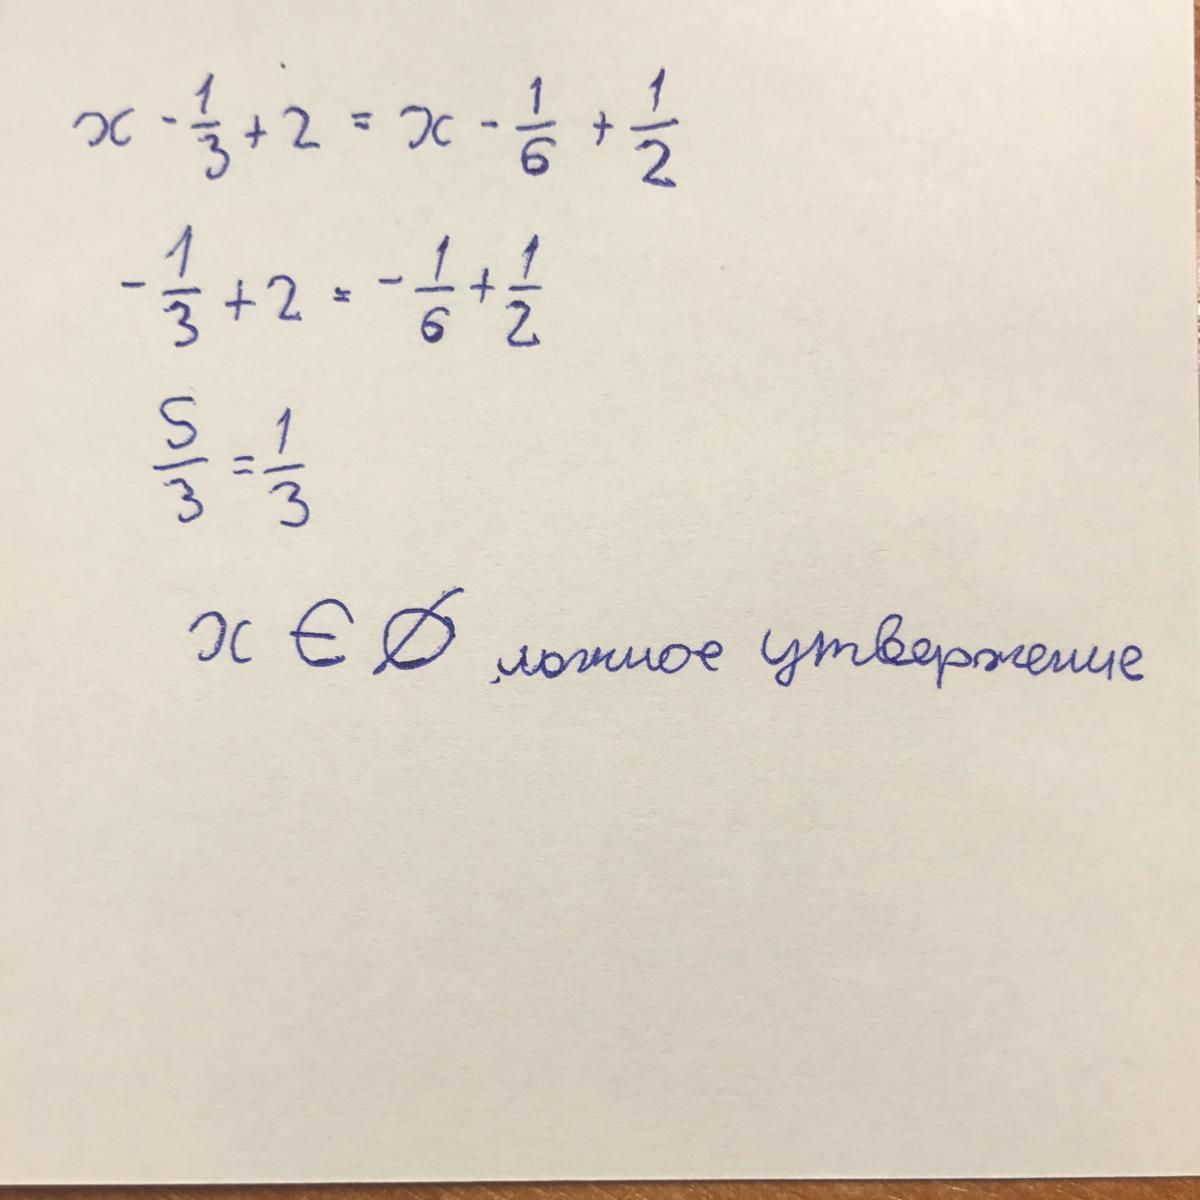 x - 1/3 + 2 = x - 1/6 + 1/2
- 1/3 + 2 = - 1/6 + 1/2
5/3 = 1/3
x ∈ Ø ложное утвержение